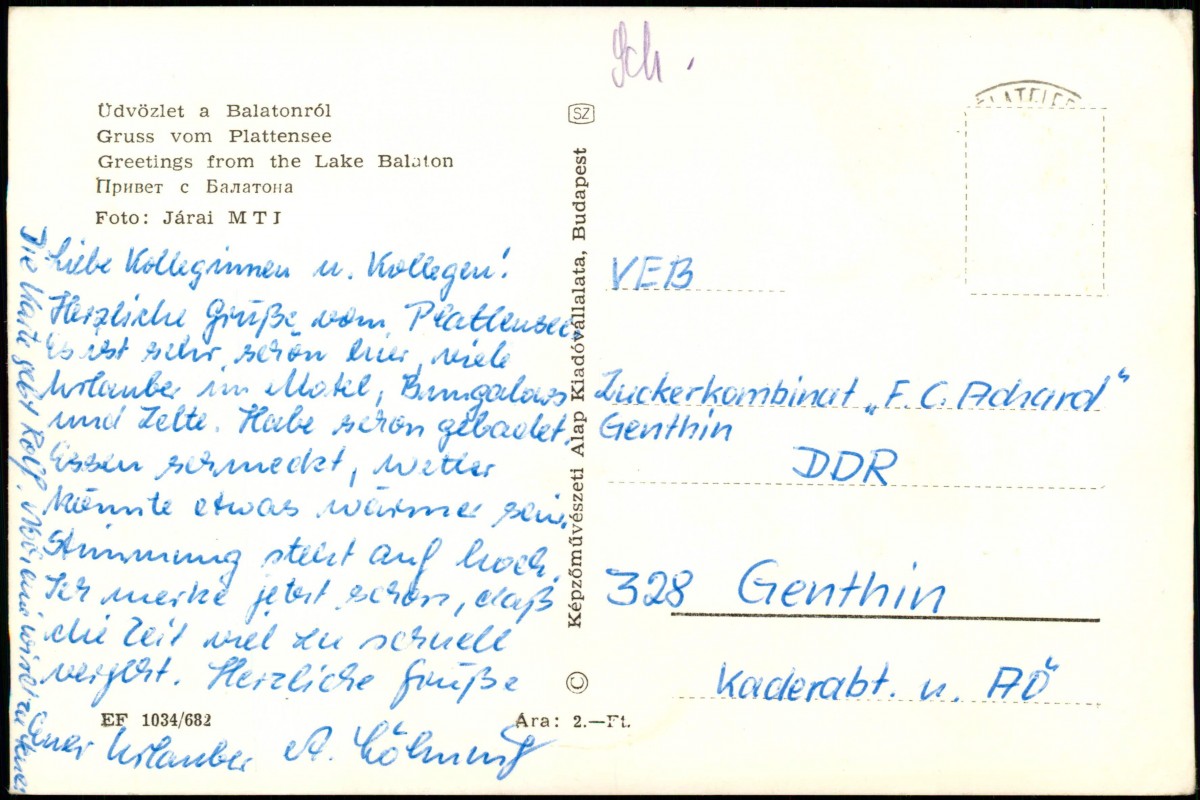 Üdvözlet a Balatonról
Gruss vom Plattensee
Greetings from the Lake Balaton
Привет с Балатона
Foto: Járai MTI
Liebe Kolleginnen u. Kollegen!
Herzliche Grüße vom Plattensee.
Es ist sehr schön hier, viele
Urlauber im Motel, Bungalows
und Zelte. Habe schon gebadet.
Essen schmeckt, Wetter
könnte etwas wärmer sein.
Stimmung steht auf hoch.
Ich merke jetzt schon, daß
die Zeit viel zu schnell
vergeht. Herzliche Grüße
Euer Urlauber A.
Die Karte geht
EF 1034/682
Ára: 2.—Ft.
SZ
Képzőművészeti Alap Kiadóvállalata, Budapest
©
Sch.
VEB
Zuckerkombinat „F. C. Achard"
Genthin
DDR
328 Genthin
Kaderabt. u. AÖ